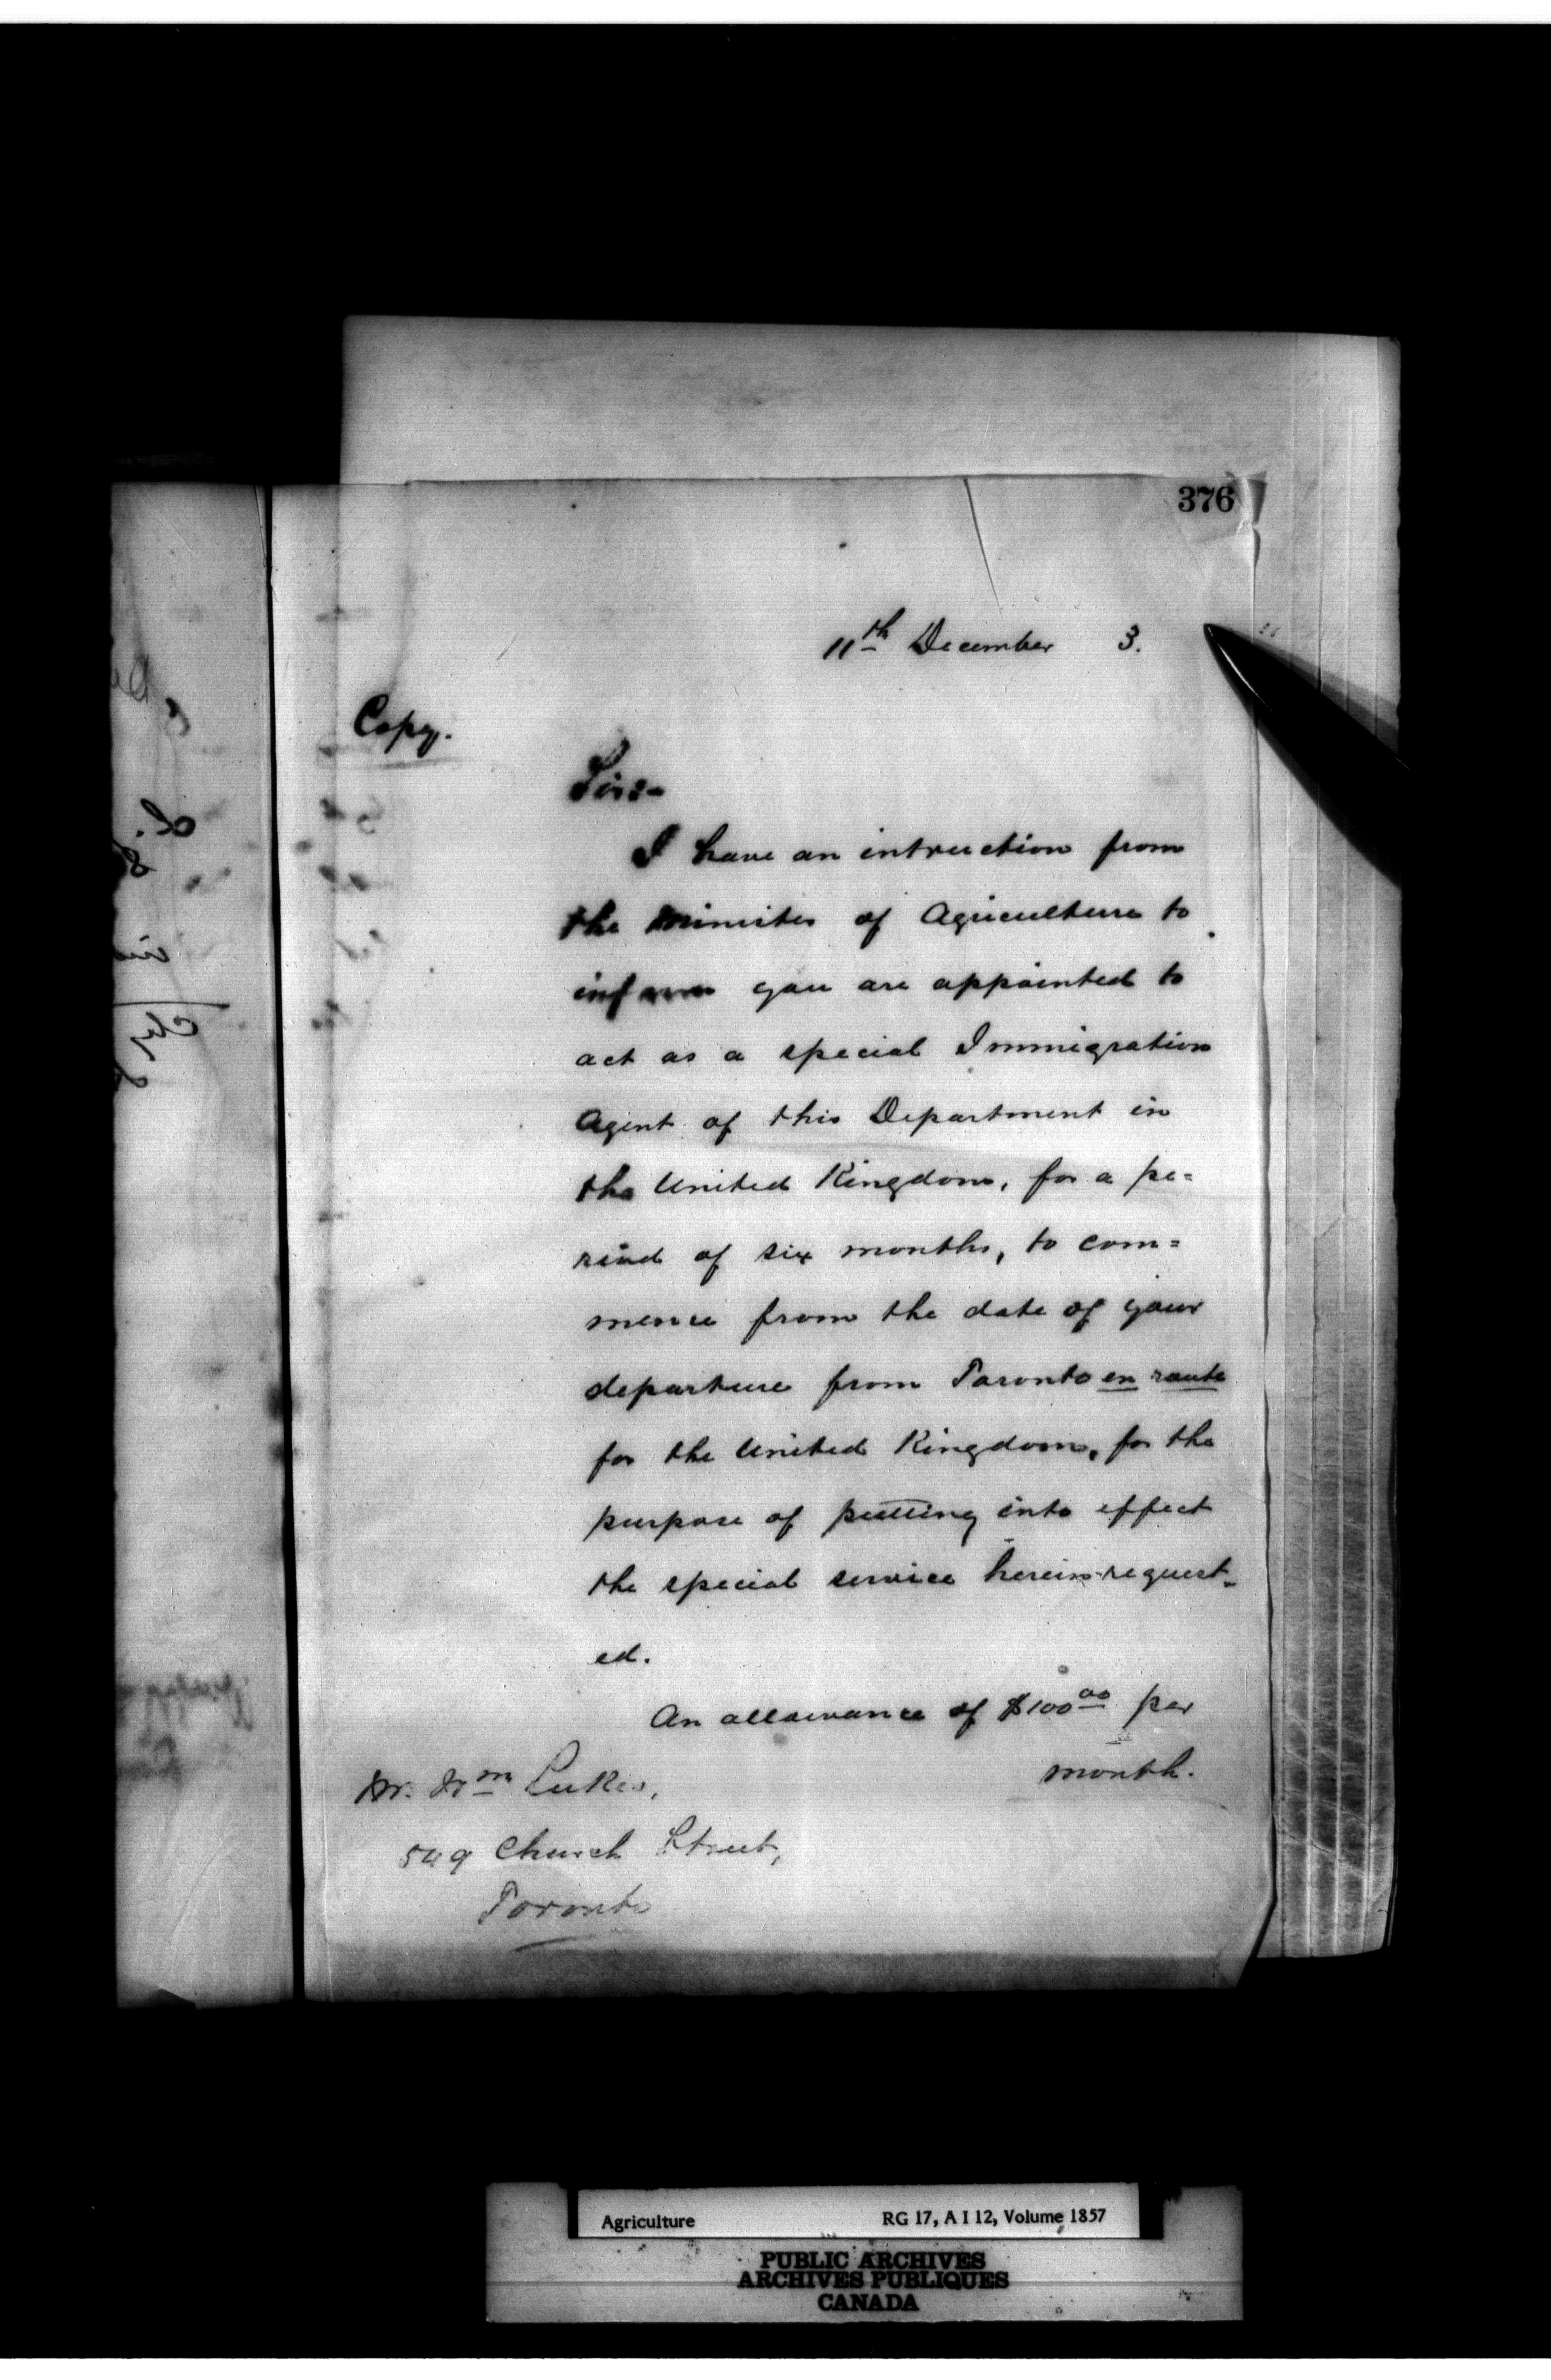 376
11th December 3.
Copy.
Sir:-
I have an intruction from
the Minister of Agriculture to
inform you are appointed to
act as a special Immigration
Agent of this Department in
the United Kingdom, for a pe=
riod of six months, to com=
mence from the date of your
departure from Toronto en route
for the United Kingdom, for the
purpose of putting into effect
the special service herein request-
ed.
An allowance of $100 00 per
month.
Mr. Wm Lukes,
549 Church Street,
Toronto
Agriculture RG 17, A I 12, Volume 1857
PUBLIC ARCHIVES
ARCHIVES PUBLIQUES
CANADA